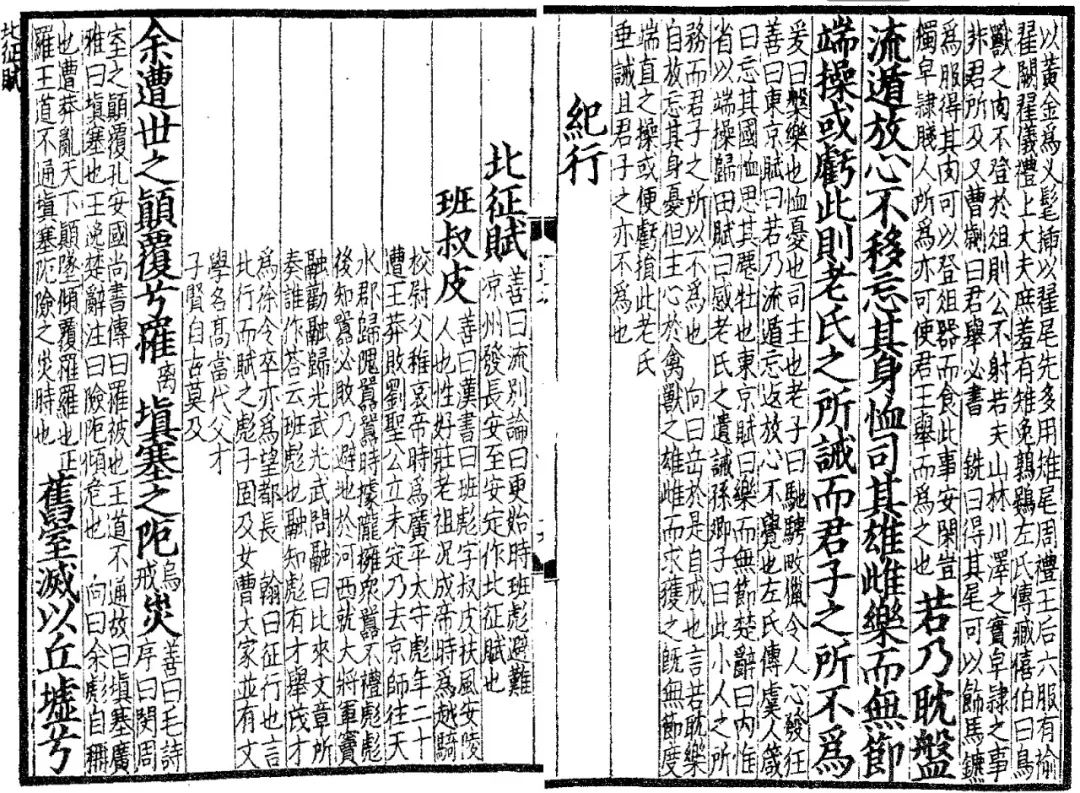 以黃金為义髦揷以翟尾先多用雉尾周禮王后六服有褕
翟闕翟儀禮上大夫庶羞有雉兔鶉鷃左氏傳臧僖伯曰鳥
獸之肉不登於俎則公不射若夫山林川澤之實皁隷之事
非君所及又曹劌曰君舉必書 銑曰得其尾可以飾馬鑣
為服得其肉可以登俎器而食此事安閑豈
獨皁隷賤人所為亦可使君王舉而為之也
若乃耽盤
流遁放心不移忘其身恤司其雄雌樂而無節
端操或虧此則老氏之所誡而君子之所不為
爰曰槃樂也恤憂也司主也老子曰馳騁畋獵令人心發狂
善曰東京賦曰若乃流遁忘返放心不覺也左氏傳虞人箴
曰忘其國恤思其麀牡也東京賦曰樂而無節楚辭曰內惟
省以端操歸田賦曰感老氏之遺誡孫卿子曰此小人之所
務而君子之所以不為也 向曰岳於是自戒也言若耽樂
自放忘其身憂但主心於禽獸之雄雌而求獲之旣無節度
端直之操或便虧損此老氏
垂誡且君子之亦不為也
紀行
北征賦
善曰流別論曰更始時班彪避難
凉州發長安至安定作北征賦也
班叔皮
善曰漢書曰班彪字叔皮扶風安陵
人也性好莊老祖況成帝時為越騎
校尉父稚哀帝時為廣平太守彪年二十
遭王莽敗劉聖公立未定乃去京師往天
水郡歸隗囂囂時據隴擁衆囂不禮彪彪
後知囂必敗乃避地於河西就大將軍竇
融勸融歸光武光武問融曰比來文章所
奏誰作荅云班彪也融知彪有才舉茂才
為徐令卒亦為望都長 翰曰征行也言
此行而賦之彪子固及女曹大家並有文
學名高當代父才
子賢自古莫及
余遭世之顚覆兮罹離塡塞之阨烏戒災
善曰毛詩
序曰閔周
室之顚覆孔安國尚書傳曰罹被也王道不通故曰塡塞廣
雅曰塡塞也王逸楚辭注曰險阨傾危也 向曰余彪自稱
也曹莽亂天下顚墜傾覆羅罹也正
羅王道不通塡塞阨險之災時也
舊室滅以丘墟兮
北征賦